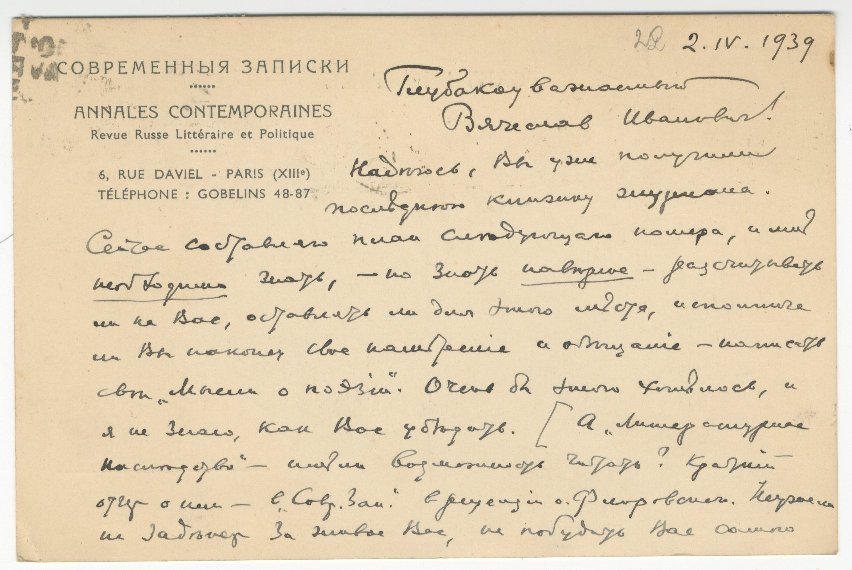 22 2.IV.1939
СОВРЕМЕННЫЯ ЗАПИСКИ
ANNALES CONTEMPORAINES
Revue Russe Littéraire et Politique
6, RUE DAVIEL - PARIS (XIIIe)
TÉLÉPHONE : GOBELINS 48-87
Глубокоуважаемый
Вячеслав Иванович!
Надѣюсь, Вы уже получили
послѣднюю книжку журнала.
Сейчас составляю план слѣдующаго номера, и мнѣ
необходимо знать, – но знать навѣрное – разсчитывать
ли на Вас, оставлять ли для этого мѣсто, исполните
ли Вы наконец свое намѣреніе и обѣщаніе – написать
свои „Мысли о поэзіи“. Очень бы этого хотѣлось, и
я не знаю, как Вас убѣдить. [ А „Литературное
наслѣдство“ – имѣли возможность читать? Краткій
отчет о нем – в „Совр. Зап.“ в рецензіи о. Флоровскаго. Неужели
не задѣнет за живое Вас, не побудит Вас самого